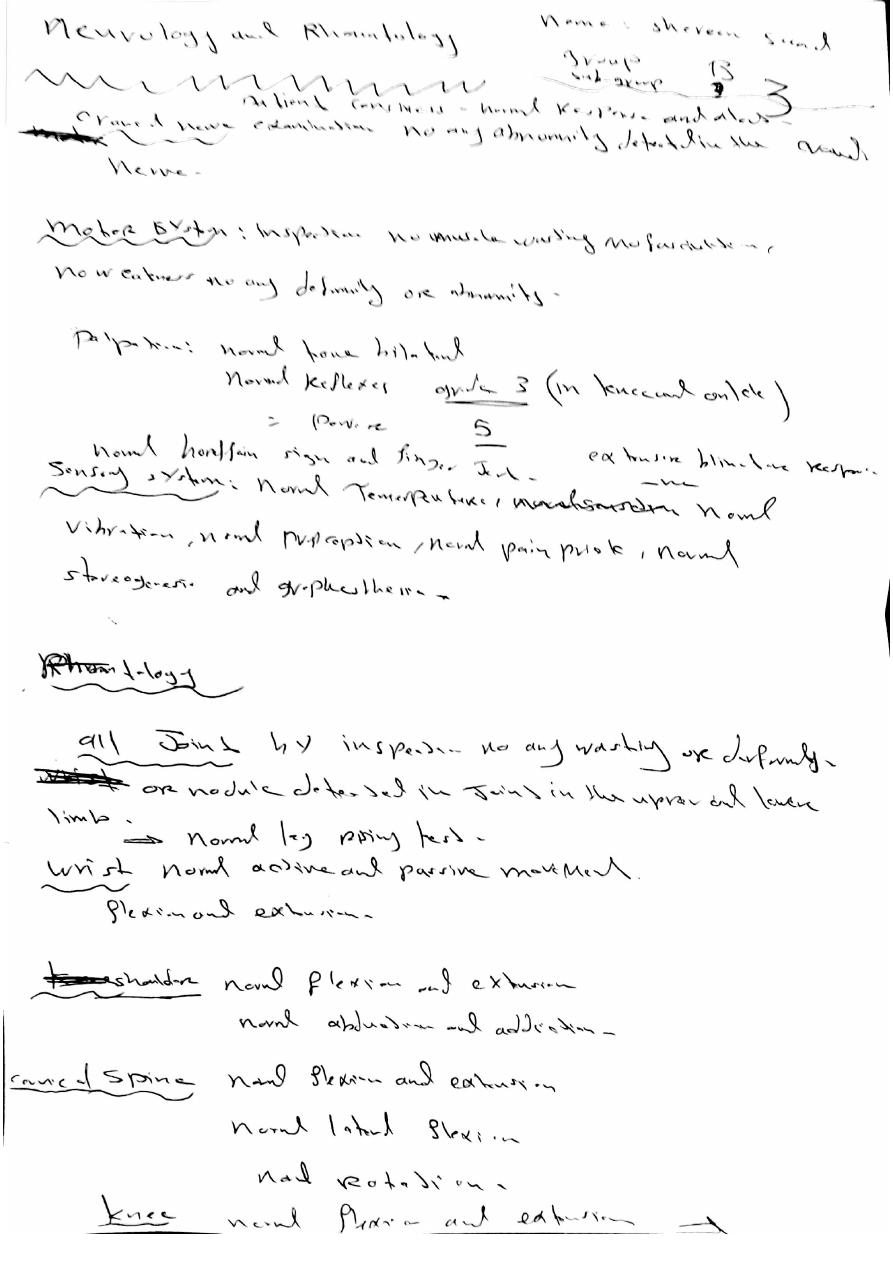 Neurology and Rhumtology
Name : shereen
group B
sub group 3
Patient consiness = normal Response and alert
Cranial nerve examination no any abnormity detectd in the cranial
Nerve.
Motor System : Inspection no muscle wasting no fasciculation,
no weakness no any deformity ore abnormity.
Palpation: normal tone bilateral
Normal Reflexes grade 3 (in knee and ankle)
= Powere 5
normal hoffman sign and finger Jerk. extensive response
-ve
Sensory system: Normal Temerpeture, Normal
vibration, normal propception, normal pain prick, normal
stereogenesis and graphesthesia.
Rhumtology
all Joint by inspection no any washing ore deformity.
or nodule detected in Joint in the upper and lower
limb.
→ normal leg test.
Wrist normal active and passive movement.
flexion and extension.
shouldore normal flexion and extension
normal abduction and addiction.
cervical Spine normal flexion and extension
normal lateral flexion
normal Rotation.
knee normal flexion and extension →